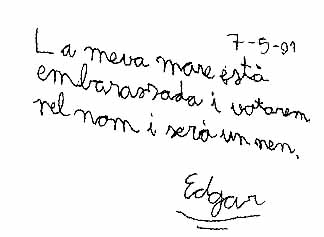 7-5-01
La meva mare està
embarassada i votarem
nel nom i serà un nen.
Edgar